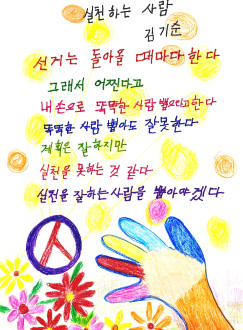 실천하는 사람
김기순
선거는 돌아올 때마다 한다
그래서 어쩐다고
내 손으로 똑똑한 사람 뽑으라고 한다
똑똑한 사람 뽑아도 잘못한다
계획은 잘하지만
실천을 못하는 것 같다
실천을 잘하는 사람을 뽑아야겠다